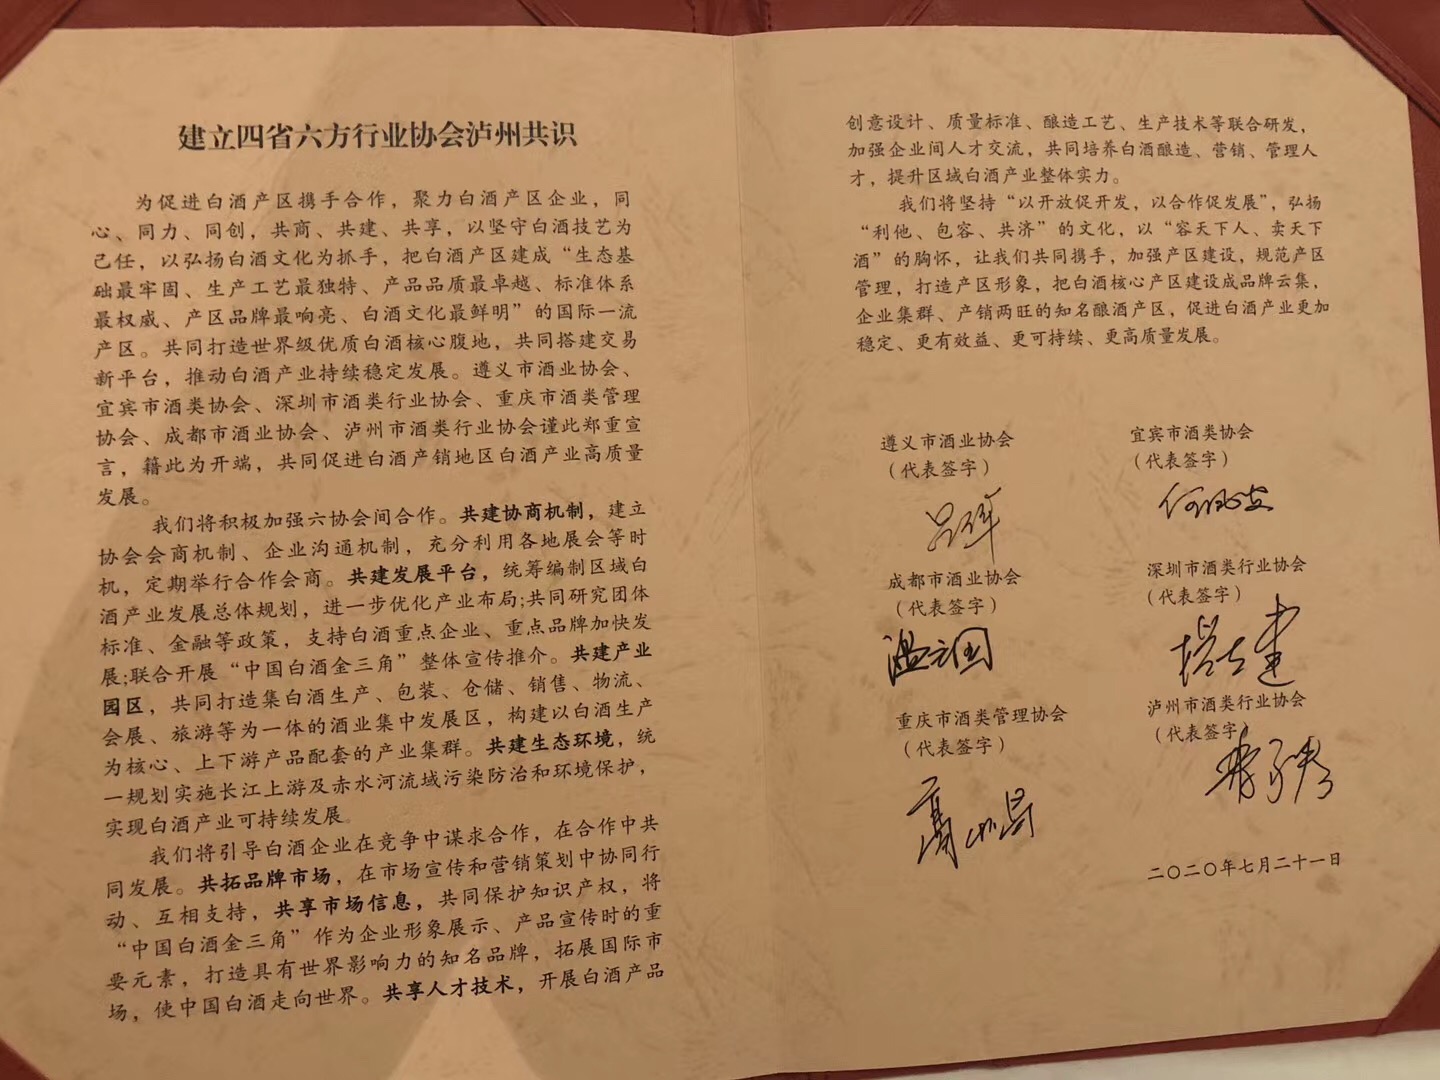 建立四省六方行业协会泸州共识
为促进白酒产区携手合作，聚力白酒产区企业，同
心、同力、同创，共商、共建、共享，以坚守白酒技艺为
己任，以弘扬白酒文化为抓手，把白酒产区建成“生态基
础最牢固、生产工艺最独特、产品品质最卓越、标准体系
最权威、产区品牌最响亮、白酒文化最鲜明”的国际一流
产区。共同打造世界级优质白酒核心腹地，共同搭建交易
新平台，推动白酒产业持续稳定发展。遵义市酒业协会、
宜宾市酒类协会、深圳市酒类行业协会、重庆市酒类管理
协会、成都市酒业协会、泸州市酒类行业协会谨此郑重宣
言，籍此为开端，共同促进白酒产销地区白酒产业高质量
发展。
我们将积极加强六协会间合作。共建协商机制，建立
协会会商机制、企业沟通机制，充分利用各地展会等时
机，定期举行合作会商。共建发展平台，统筹编制区域白
酒产业发展总体规划，进一步优化产业布局;共同研究团体
标准、金融等政策，支持白酒重点企业、重点品牌加快发
展;联合开展“中国白酒金三角”整体宣传推介。共建产业
园区，共同打造集白酒生产、包装、仓储、销售、物流、
会展、旅游等为一体的酒业集中发展区，构建以白酒生产
为核心、上下游产品配套的产业集群。共建生态环境，统
一规划实施长江上游及赤水河流域污染防治和环境保护，
实现白酒产业可持续发展。
我们将引导白酒企业在竞争中谋求合作，在合作中共
同发展。共拓品牌市场，在市场宣传和营销策划中协同行
动、互相支持，共享市场信息，共同保护知识产权，将
“中国白酒金三角”作为企业形象展示、产品宣传时的重
要元素，打造具有世界影响力的知名品牌，拓展国际市
场，使中国白酒走向世界。共享人才技术，开展白酒产品
创意设计、质量标准、酿造工艺、生产技术等联合研发，
加强企业间人才交流，共同培养白酒酿造、营销、管理人
才，提升区域白酒产业整体实力。
我们将坚持“以开放促开发，以合作促发展”，弘扬
“利他、包容、共济”的文化，以“容天下人、卖天下
酒”的胸怀，让我们共同携手，加强产区建设，规范产区
管理，打造产区形象，把白酒核心产区建设成品牌云集，
企业集群、产销两旺的知名酿酒产区，促进白酒产业更加
稳定、更有效益、更可持续、更高质量发展。
遵义市酒业协会
（代表签字）
宜宾市酒类协会
（代表签字）
成都市酒业协会
（代表签字）
深圳市酒类行业协会
（代表签字）
重庆市酒类管理协会
（代表签字）
泸州市酒类行业协会
（代表签字）
二〇二〇年七月二十一日